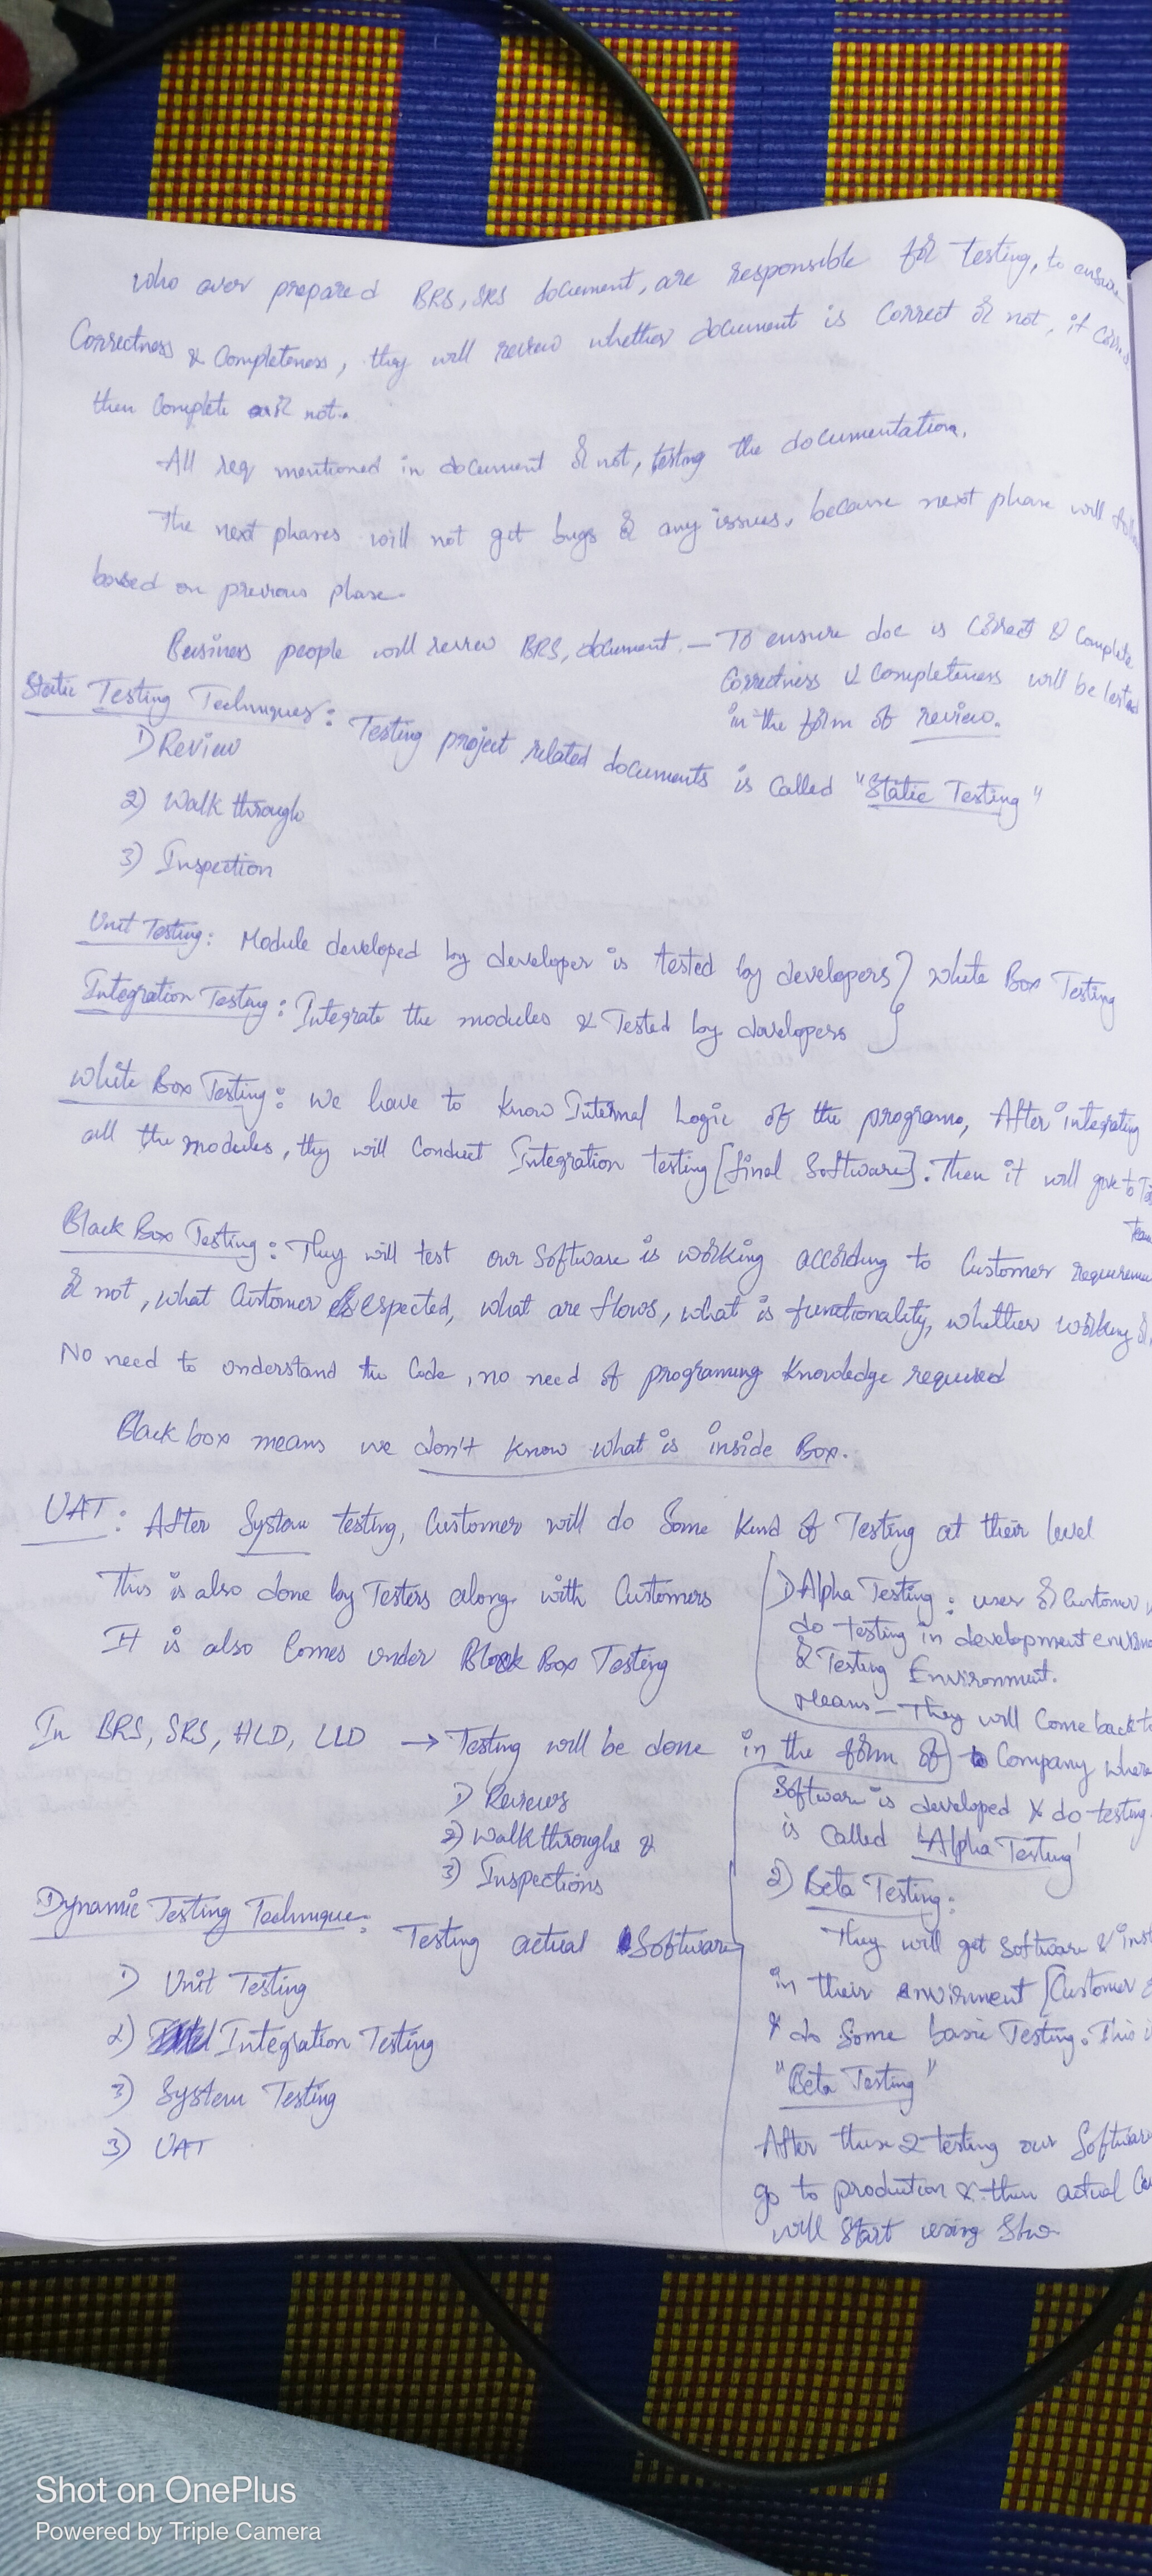 Who over prepared BRS, SRS document, are responsible for testing, to ensure
Correctness & Completeness, they will review whether document is Correct or not, if
then Complete or not.
All req mentioned in document or not, testing the documentation.
The next phases will not get bugs or any issues, because next phase will
based on previous phase.
Business people will review BRS, document. — To ensure doc is Correct & Complete
Correctness & Completeness will be tested
in the form of review.
Static Testing Techniques: Testing project related documents is called "Static Testing"
1) Review
2) Walk through
3) Inspection
Unit Testing: Module developed by developer is tested by developers } White Box Testing
Integration Testing: Integrate the modules & Tested by developers
White Box Testing: We have to know Internal Logic of the programs, After integrating
all the modules, they will Conduct Integration testing [final Software]. Then it will give to
Black Box Testing: They will test our Software is working according to Customer
or not, what Customer Espected, what are flows, what is functionality, whether working
No need to understand the Code, no need of programing Knowledge required
Black box means we don't know what is inside Box.
UAT: After System testing, Customer will do Some kind of Testing at their level
This is also done by Testers along with Customers
It is also Comes under Black Box Testing
1) Alpha Testing: user or Customer
do testing in development
or Testing Environment.
Means — They will Come back
to Company where
Software is developed & do testing
is called 'Alpha Testing'
2) Beta Testing:
They will get Software &
in their envirment [Customer
& do Some basic Testing. This
"Beta Testing"
After these 2 testing our Software
go to production & then actual
will Start using
In BRS, SRS, HLD, LLD → Testing will be done in the form of
1) Reviews
2) Walkthroughs &
3) Inspections
Dynamic Testing Technique: Testing actual Software
1) Unit Testing
2) Integration Testing
3) System Testing
3) UAT
Shot on OnePlus
Powered by Triple Camera